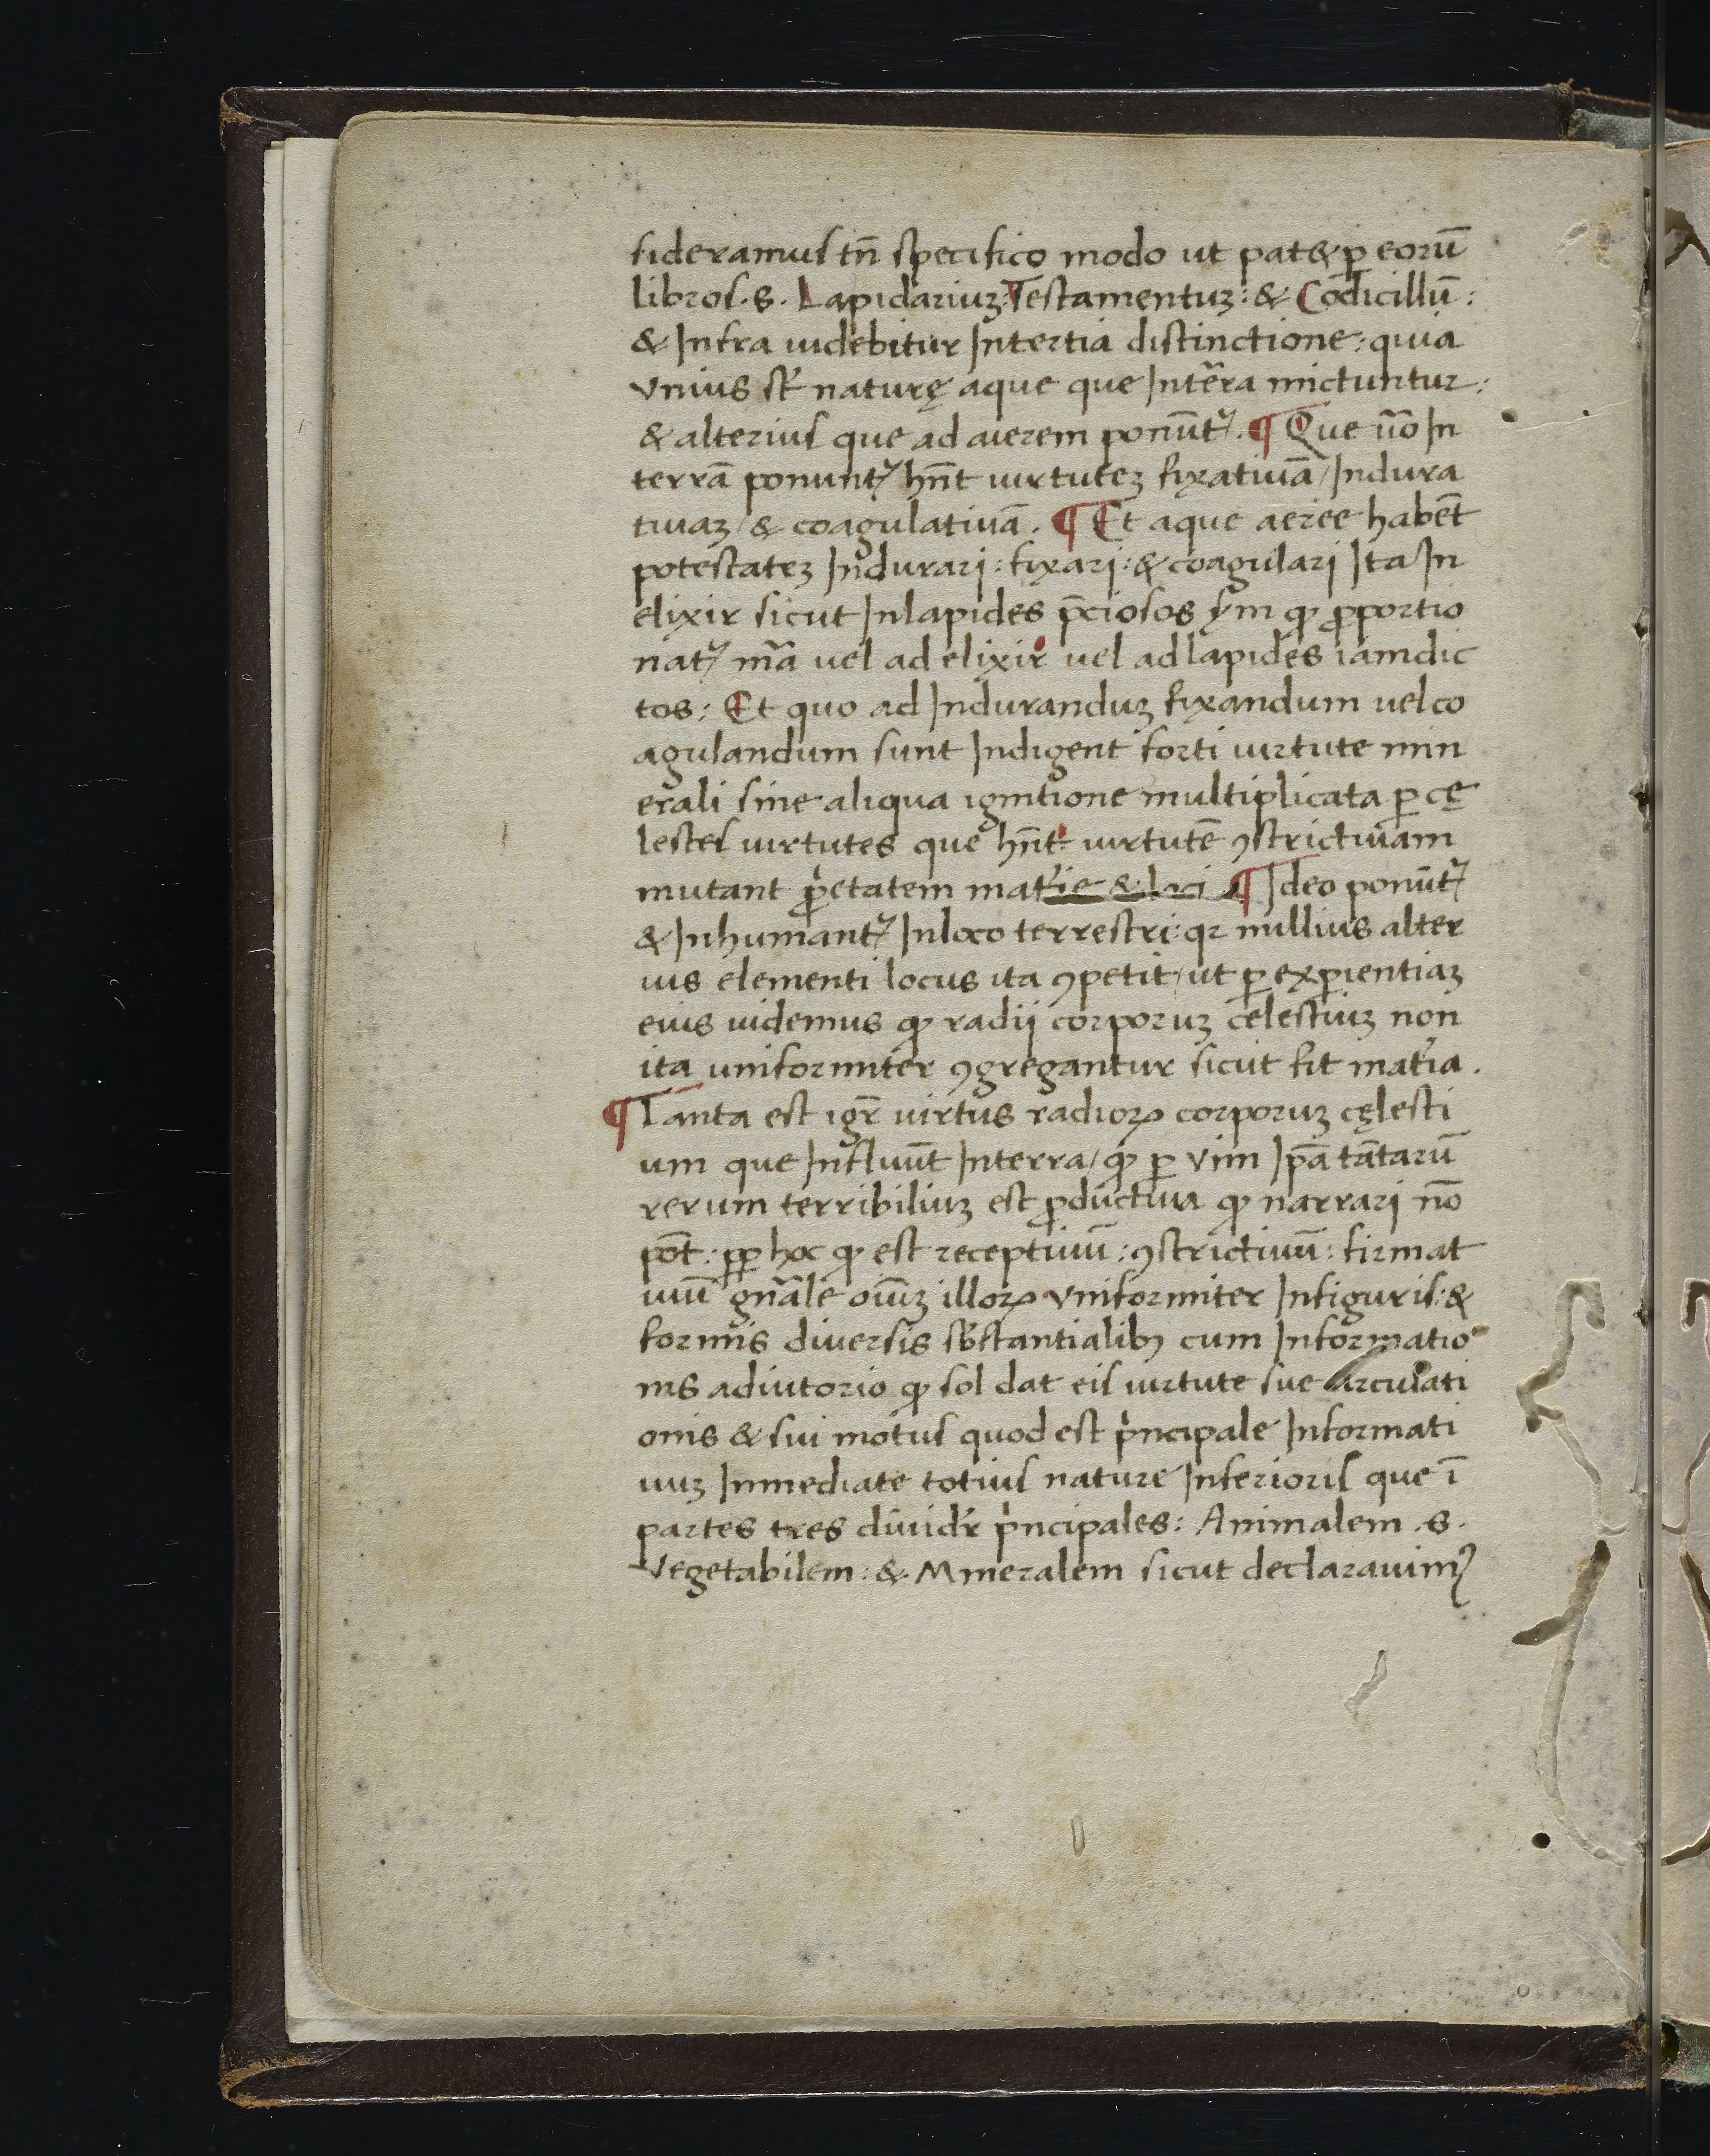 sideramus tn̄ specifico modo ut pat& ꝑ eorū
libros .s. Lapidariuꝫ: Testamentuꝫ: & Codicillū:
& Infra uidebitur Intertia distinctione: quia
vnius st̄ naturę aque que Intr̄a mictuntur:
& alterius que ad aierem ponūtᷣ. ¶ Que ūo In
terrā ponuntᷣ hn̄t uirtuteꝫ fixatiuā / Indura
tiuaꝫ / & coagulatiuā. ¶ Et aque aeree habēt
potestateꝫ Indurari: fixari: & coagulari Ita In
elixir sicut Inlapides p̄ciosos sym ꝙ ꝓportio
natᷣ mā uel ad elixir uel ad lapides iamdic
tos: Et quo ad Induranduꝫ fixandum uel co
agulandum sunt Indigent forti uirtute min
erali sine aliqua ignitione multiplicata ꝑ cę
lestes uirtutes que hn̄t uirtutē ꝯstrictiuam
mutant ꝓ̄etatem mat̄ie & loci ¶ Ideo ponūtᷣ
& Inhumantᷣ Inloco terrestri: qꝛ nullius alter
ius elementi locus ita ꝯpetit / ut ꝑ exꝑientiaꝫ
eius uidemus ꝙ radij corporuꝫ celestiuꝫ non
ita uniformiter ꝯgregantur sicut fit mat̄ia.
¶ Tanta est igr̄ virtus radioꝝ corporuꝫ cęlesti
um que Influūt Interra / ꝙ ꝑ vim Ip̄a tātarū
rerum terribiliuꝫ est ꝓductiua ꝙ narrari nō
pōt: ꝑꝑ hoc ꝙ est receptiuū: ꝯstrictiuū: firmat
iuū gn̄ale oīuꝫ illoꝝ vniformiter Infiguris: &
formis diuersis sb̄stantialibꝫ cum Informatio
nis adiutorio ꝙ sol dat eis uirtute sue circulati
onis & sui motus quod est p̍ncipale Informati
uuꝫ Inmediate totius nature Inferioris que ī
partes tres diuidr̄ p̍ncipales: Animalem .s.
Vegetabilem: & Mineralem sicut declarauimꝰ